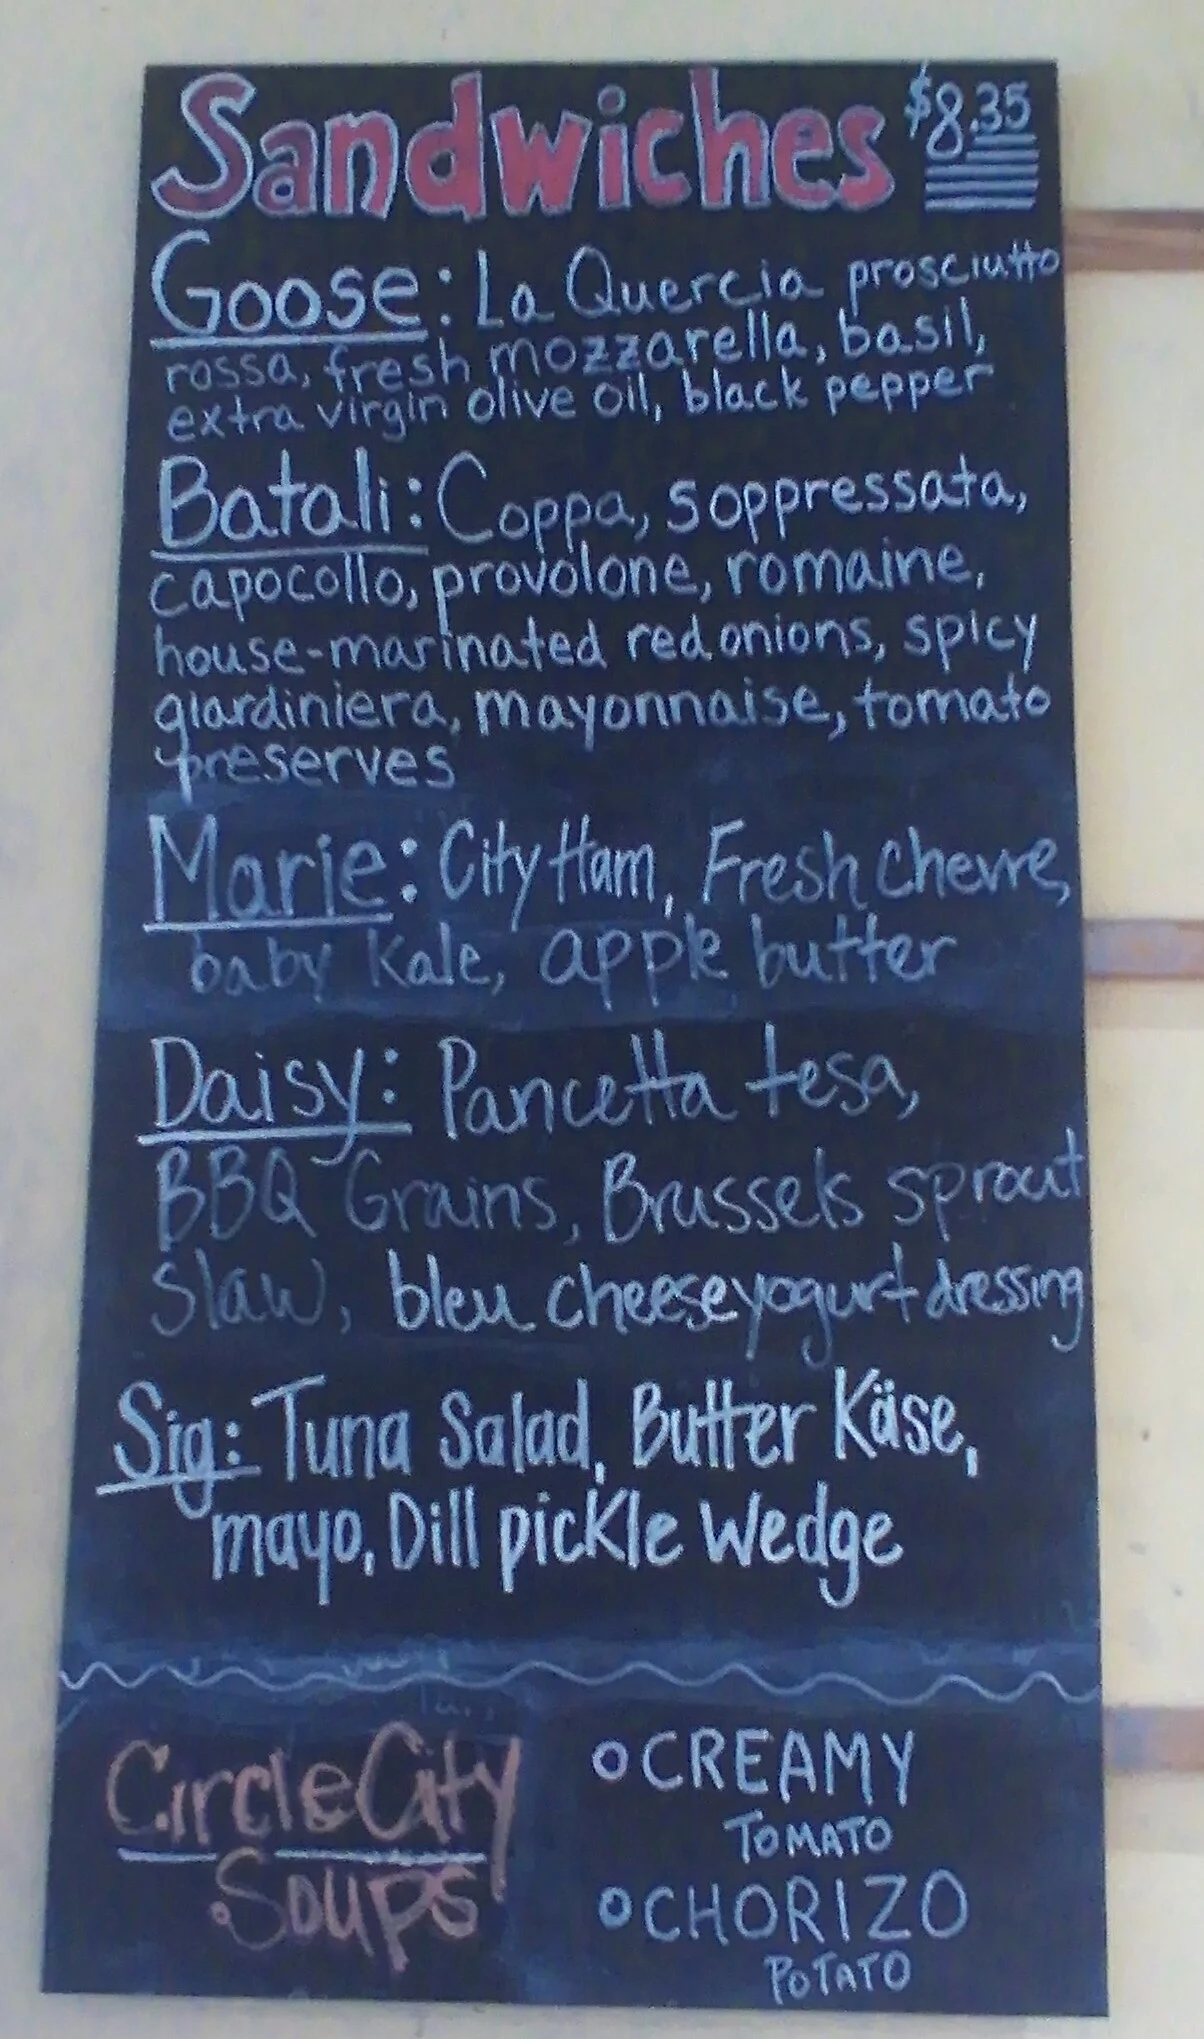 Sandwiches $8.35
Goose: La Quercia prosciutto
rossa, fresh mozzarella, basil,
extra virgin olive oil, black pepper
Batali: Coppa, soppressata,
capocollo, provolone, romaine,
house-marinated red onions, spicy
giardiniera, mayonnaise, tomato
preserves
Marie: City Ham, Fresh chevre,
baby Kale, apple butter
Daisy: Pancetta tesa,
BBQ Grains, Brussels sprout
slaw, bleu cheese yogurt dressing
Sig: Tuna Salad, Butter Käse,
mayo, Dill pickle Wedge
Circle City
Soups
CREAMY
TOMATO
CHORIZO
POTATO